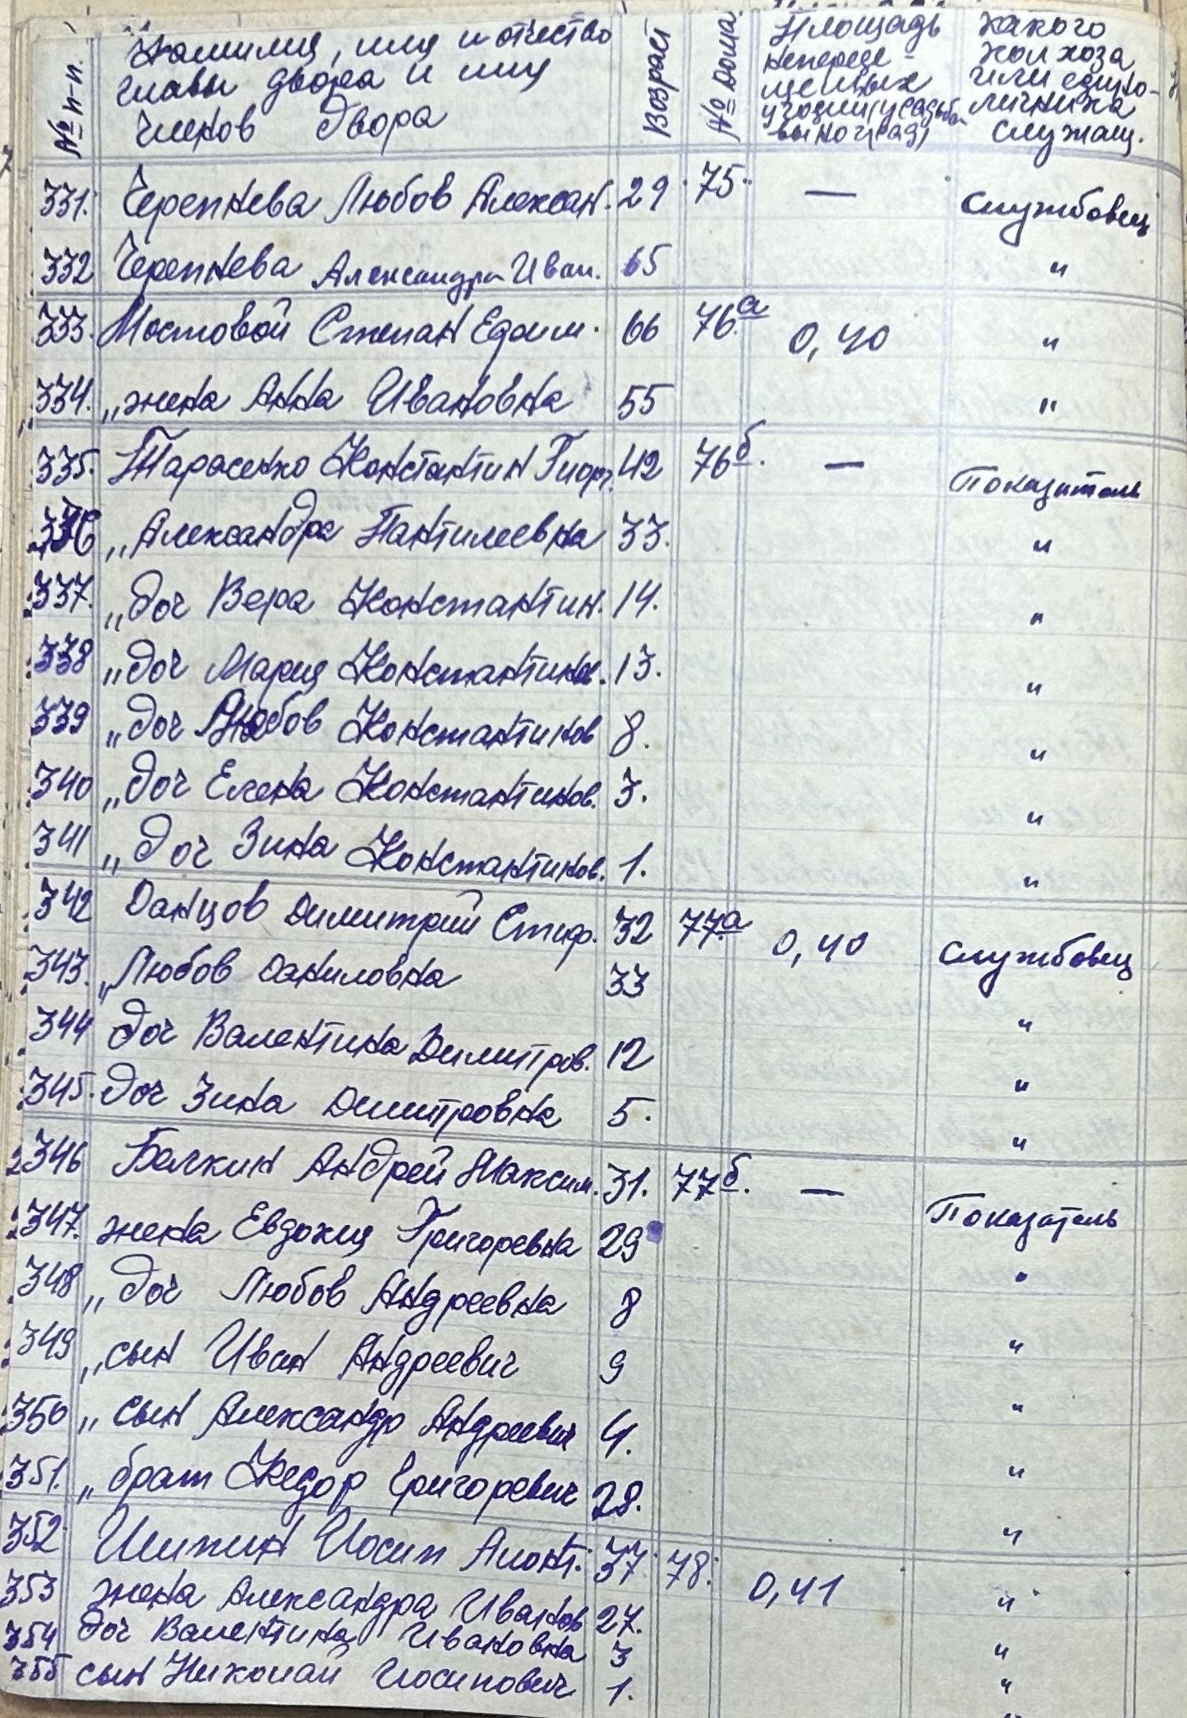 № п-п. Фамилия, имя и отчество главы двора и имя членов двора Возраст № Дома Площадь непереде- щеных угодий (усадьба виноград) какого колхоза или едино- личника служащ.
331. Черепнева Любов Алексан. 29 75. — Службовец
332 Черепнева Александра Иван. 65 "
333. Мостовой Степан Едоим. 66 76а 0,40 "
334. " жена Анна Ивановна 55 "
335. Тарасенко Константин Гиорг. 42 76б. — Показитель
336 " Александра Пантилеевна 33. "
337. " доч Вера Константин. 14. "
338 " доч Мария Константинов. 13. "
339 " доч Любов Константинов 8. "
340 " доч Елена Константинов. 3. "
341 " доч Зина Константинов. 1. "
342 Данцов Димитрий Стиф. 32 77а 0,40 Службовец
343. " Любов Даниловна 33 "
344 доч Валентина Димитров. 12 "
345. доч Зина Димитровна 5. "
346 Белкин Андрей Максим. 31. 77б. — Показатель
347. жена Евдокия Григоревна 29 "
348 " доч Любов Андреевна 8 "
349 " сын Иван Андреевич 9 "
350 " сын Александр Андреевич 4. "
351. " брат Федор Григоревич 28. "
352 Шипин Иосип Алонт. 37. 78. 0,41 "
353 жена Александра Иванов 27. "
354 доч Валентина Ивановна 3 "
355 сын Николай Иосипович 1. "